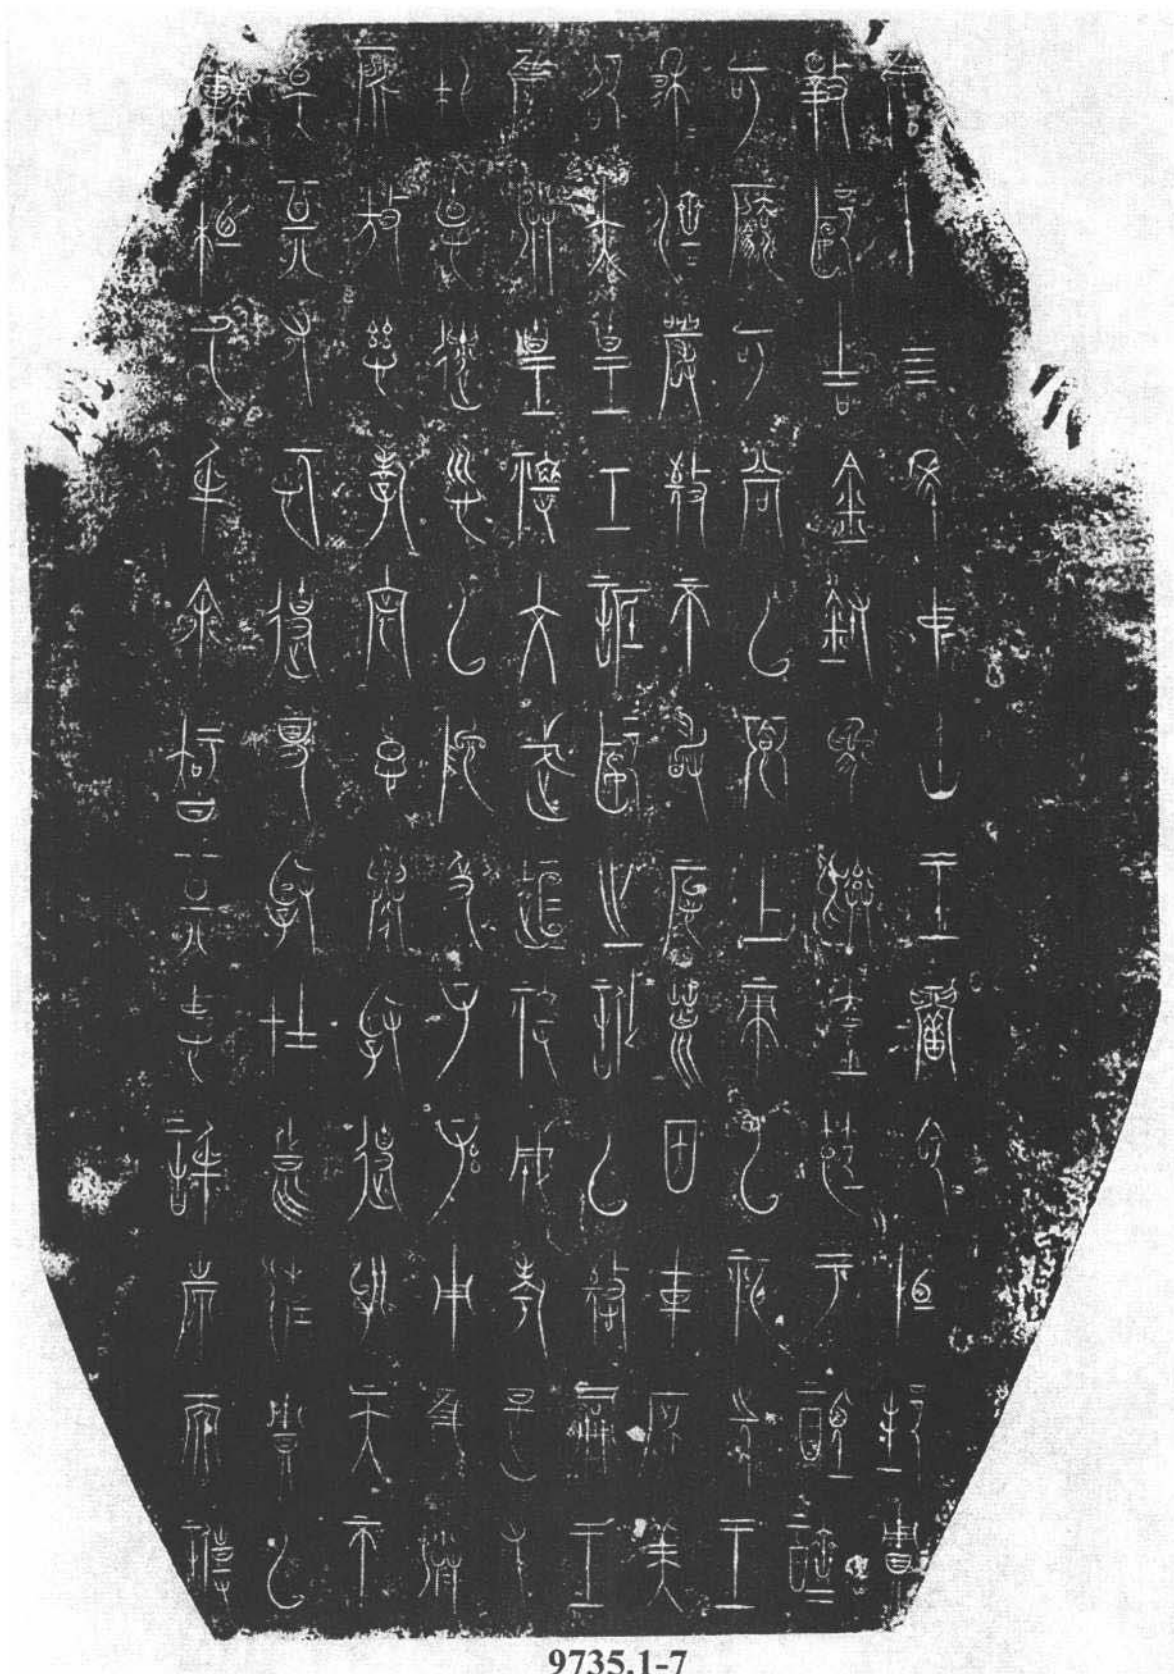 隹十四年中山王䰜命相邦賙
斁郾吉金鑄為彝壺節于醴齊
可灋可尚以鄉上帝以祀先王
穆=濟=嚴敬不敢怠荒因載所美
卲大皇工詆郾之訛以憼嗣王
隹朕皇祖文武桓祖成考是又
純德遺訓以施及子孫用隹朕
所放慈孝寰惠舉賢使能天不
斁其又忨使得賢在良佐賙以
輔相氒身余智其忠信也而專
9735.1-7